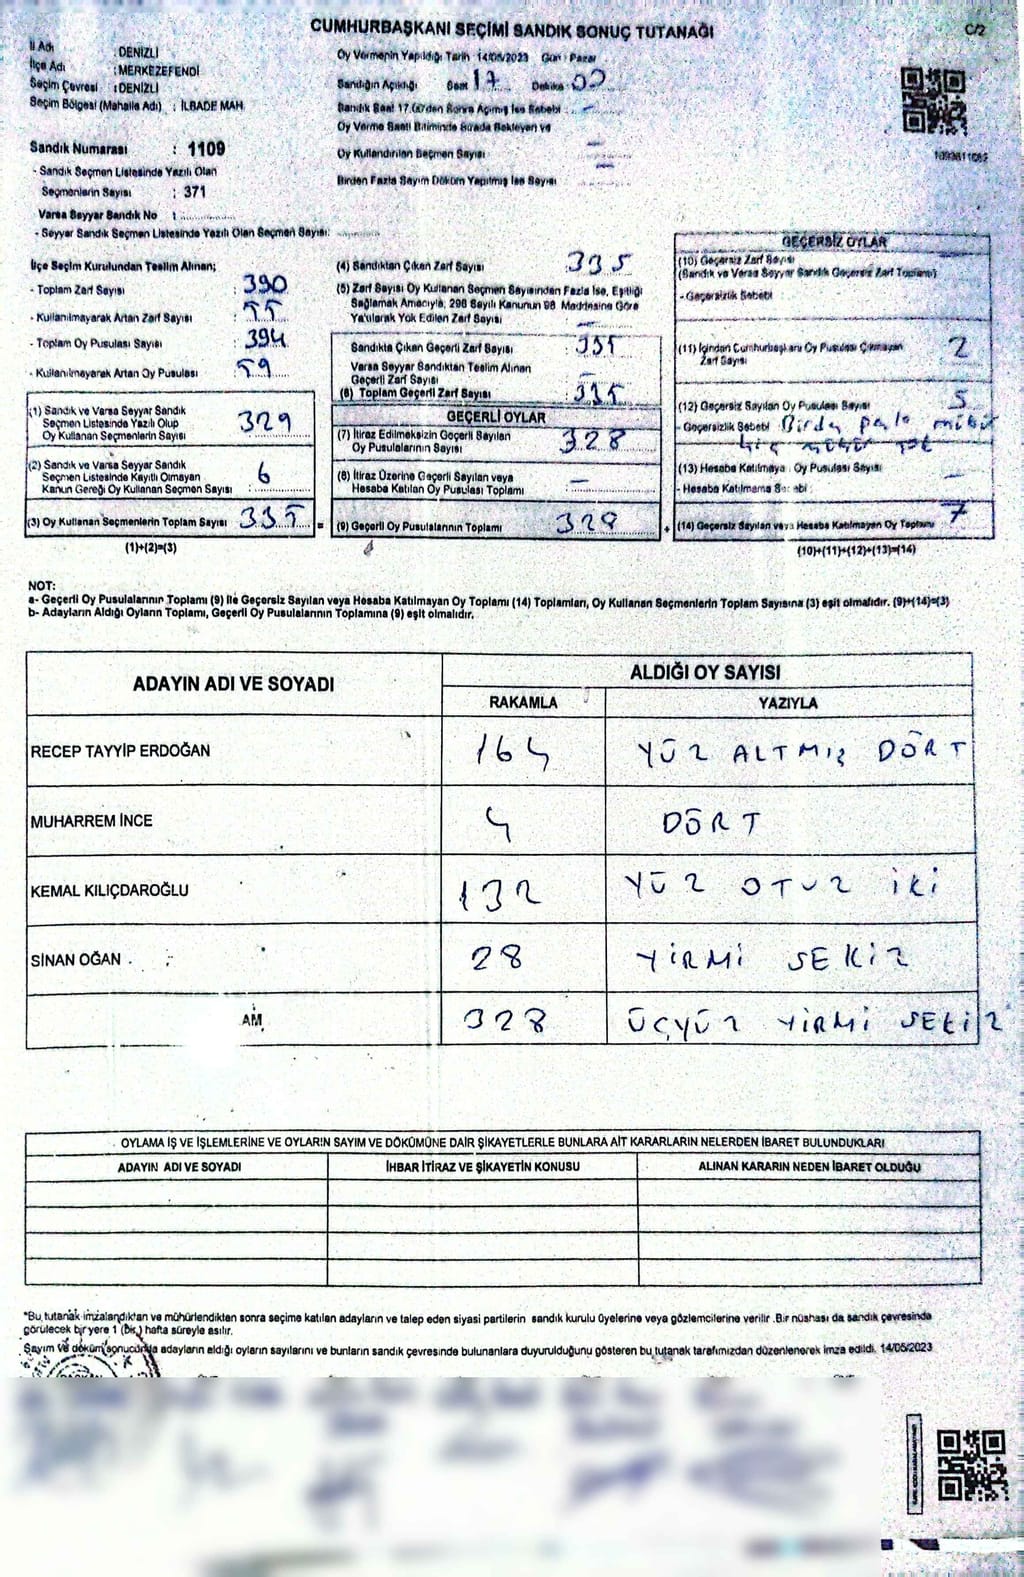 CUMHURBAŞKANI SEÇİMİ SANDIK SONUÇ TUTANAĞI
C/2
İl Adı : DENİZLİ
İlçe Adı : MERKEZEFENDİ
Seçim Çevresi : DENİZLİ
Seçim Bölgesi (Mahalle Adı) : İLBADE MAH.
Sandık Numarası : 1109
- Sandık Seçmen Listesinde Yazılı Olan
Seçmenlerin Sayısı : 371
Varsa Seyyar Sandık No :
- Seyyar Sandık Seçmen Listesinde Yazılı Olan Seçmen Sayısı:
Oy Vermenin Yapıldığı Tarih 14/05/2023 Gün: Pazar
Sandığın Açıldığı Saat 17 Dakika 00
Sandık Saat 17.00'den Sonra Açılmış İse Sebebi
Oy Verme Saati Bitiminde Sırada Bekleyen ve
Oy Kullandırılan Seçmen Sayısı
Birden Fazla Sayım Döküm Yapılmış İse Sayısı
İlçe Seçim Kurulundan Teslim Alınan;
- Toplam Zarf Sayısı : 390
- Kullanılmayarak Artan Zarf Sayısı : 55
- Toplam Oy Pusulası Sayısı : 394
- Kullanılmayarak Artan Oy Pusulası : 59
(1) Sandık ve Varsa Seyyar Sandık
Seçmen Listesinde Yazılı Olup
Oy Kullanan Seçmenlerin Sayısı 329
(2) Sandık ve Varsa Seyyar Sandık
Seçmen Listesinde Kayıtlı Olmayan
Kanun Gereği Oy Kullanan Seçmen Sayısı : 6
(3) Oy Kullanan Seçmenlerin Toplam Sayısı 335 =
(1)+(2)=(3)
(4) Sandıktan Çıkan Zarf Sayısı 335
(5) Zarf Sayısı Oy Kullanan Seçmen Sayısından Fazla İse, Eşitliği
Sağlamak Amacıyla, 298 Sayılı Kanunun 98. Maddesine Göre
Yakılarak Yok Edilen Zarf Sayısı –
Sandıkta Çıkan Geçerli Zarf Sayısı : 335
Varsa Seyyar Sandıktan Teslim Alınan
Geçerli Zarf Sayısı –
(6) Toplam Geçerli Zarf Sayısı : 335
GEÇERLİ OYLAR
(7) İtiraz Edilmeksizin Geçerli Sayılan
Oy Pusulasının Sayısı 328
(8) İtiraz Üzerine Geçerli Sayılan veya
Hesaba Katılan Oy Pusulası Toplamı –
(9) Geçerli Oy Pusulalarının Toplamı 328 +
GEÇERSİZ OYLAR
(10) Geçersiz Zarf Sayısı
(Sandık ve Varsa Seyyar Sandık Geçersiz Zarf Toplamı)
- Geçersizlik Sebebi :
(11) İçinden Cumhurbaşkanı Oy Pusulası Çıkmayan
Zarf Sayısı 2
(12) Geçersiz Sayılan Oy Pusulası Sayısı 5
- Geçersizlik Sebebi Birden fazla mühür
hiç mühür yok
(13) Hesaba Katılmayan Oy Pusulası Sayısı –
- Hesaba Katılmama Sebebi :
(14) Geçersiz Sayılan veya Hesaba Katılmayan Oy Toplamı 7
(10)+(11)+(12)+(13)=(14)
NOT:
a- Geçerli Oy Pusulalarının Toplamı (9) İle Geçersiz Sayılan veya Hesaba Katılmayan Oy Toplamı (14) Toplamları, Oy Kullanan Seçmenlerin Toplam Sayısına (3) eşit olmalıdır. (9)+(14)=(3)
b- Adayların Aldığı Oyların Toplamı, Geçerli Oy Pusulalarının Toplamına (9) eşit olmalıdır.
ADAYIN ADI VE SOYADI
ALDIĞI OY SAYISI
RAKAMLA YAZIYLA
RECEP TAYYİP ERDOĞAN 164 YÜZ ALTMIŞ DÖRT
MUHARREM İNCE 4 DÖRT
KEMAL KILIÇDAROĞLU 132 YÜZ OTUZ İKİ
SİNAN OĞAN 28 YİRMİ SEKİZ
AM 328 ÜÇYÜZ YİRMİ SEKİZ
OYLAMA İŞ VE İŞLEMLERİNE VE OYLARIN SAYIM VE DÖKÜMÜNE DAİR ŞİKAYETLERLE BUNLARA AİT KARARLARIN NELERDEN İBARET BULUNDUKLARI
ADAYIN ADI VE SOYADI İHBAR İTİRAZ VE ŞİKAYETİN KONUSU ALINAN KARARIN NEDEN İBARET OLDUĞU
*Bu tutanak imzalandıktan ve mühürlendikten sonra seçime katılan adayların ve talep eden siyasi partilerin sandık kurulu üyelerine veya gözlemcilerine verilir. Bir nüshası da sandık çevresinde
görülecek bir yere 1 (Bir) hafta süreyle asılır.
Sayım ve döküm sonucunda adayların aldığı oyların sayılarını ve bunların sandık çevresinde bulunanlara duyurulduğunu gösteren bu tutanak tarafımızdan düzenlenerek imza edildi. 14/05/2023